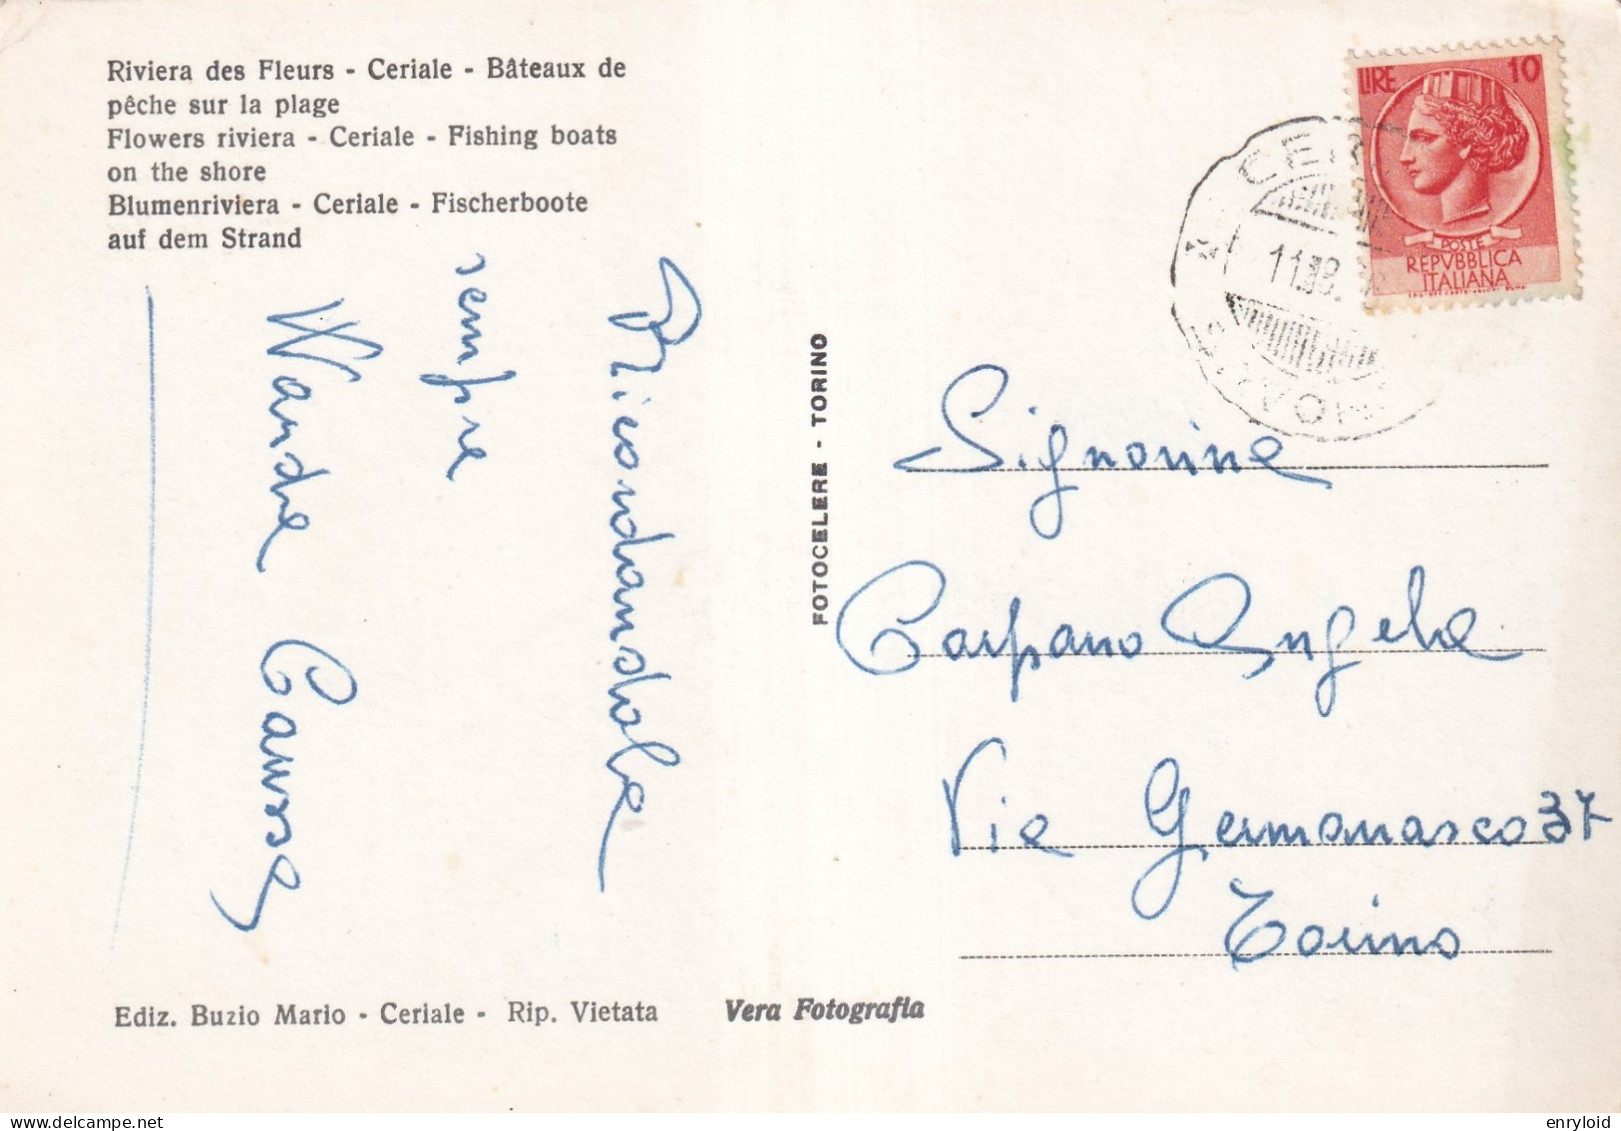 Riviera des Fleurs - Ceriale - Bâteaux de
pêche sur la plage
Flowers riviera - Ceriale - Fishing boats
on the shore
Blumenriviera - Ceriale - Fischerboote
auf dem Strand
Ricordandola
sempre
Wanda
FOTOCELERE - TORINO
LIRE 10
POSTE
REPVBBLICA
ITALIANA
Signorina
Carpano Angela
Via Germanasca 37
Torino
Ediz. Buzio Mario - Ceriale - Rip. Vietata
Vera Fotografia
enryloid @ delcampe.net